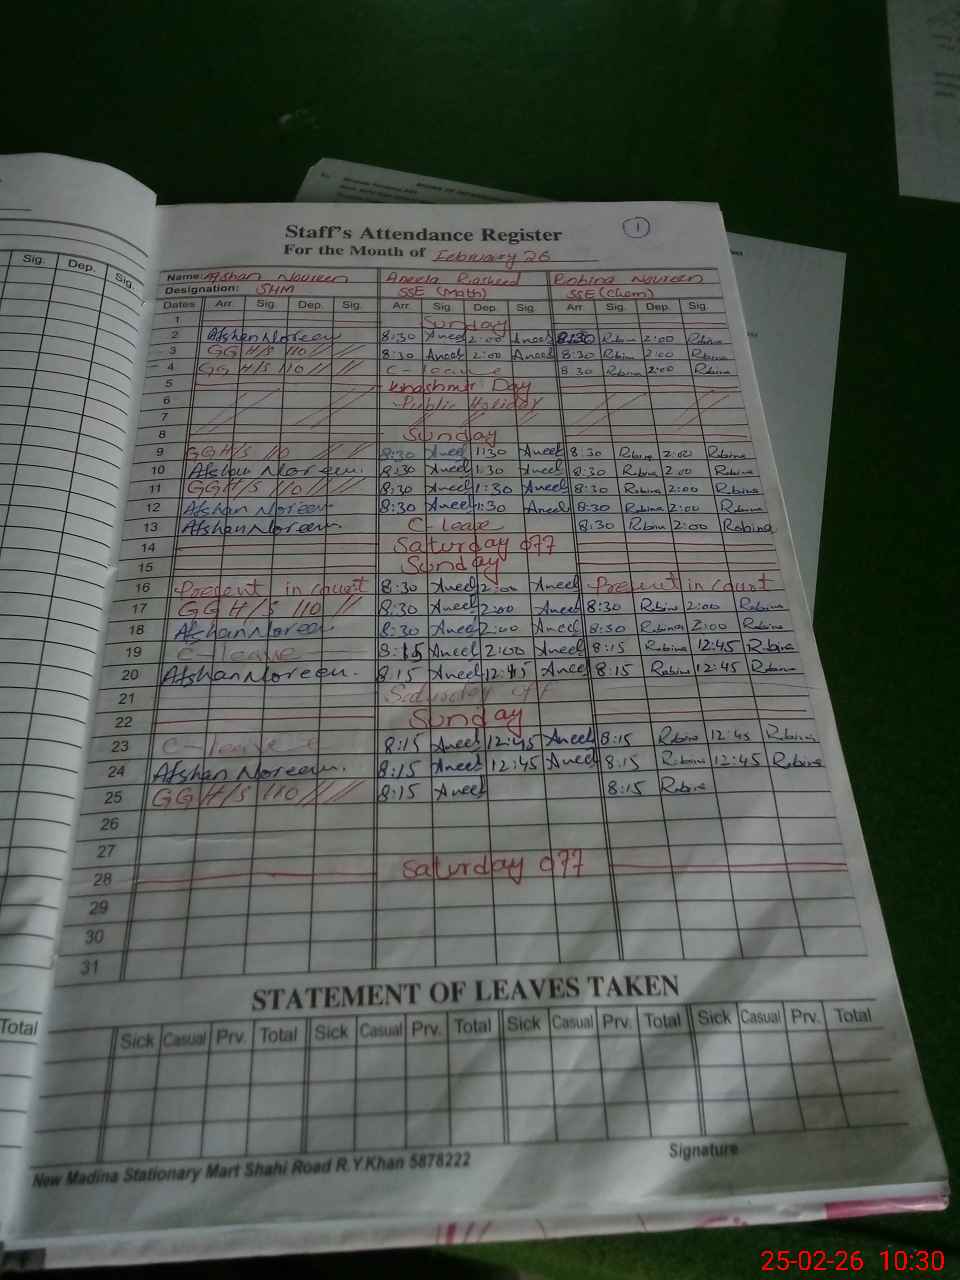 Staff's Attendance Register
1
For the Month of February 26
Name: Afshan Noureen Aneela Rasheed Robina Noureen
Designation: SHM SSE (Math) SSE (Chem)
Dates Arr. Sig. Dep. Sig. Arr. Sig. Dep. Sig. Arr. Sig. Dep. Sig.
1 Sunday
2 Afshan Noreen 8:30 Aneel 2:00 Aneel 8:30 Robin 2:00 Robina
3 GGH/S 110 8:30 Aneel 2:00 Aneel 8:30 Robin 2:00 Robina
4 GGH/S 110 C-leave 8 30 Robina 2:00 Robina
5 Khashmir Day
6 Public Holiday
7
8 Sunday
9 GGH/S 110 8:30 Aneel 1:30 Aneel 8:30 Robina 2:00 Robina
10 Afshan Noreen. 8:30 Aneel 1:30 Aneel 8:30 Robina 2:00 Robina
11 GGH/S 110 8:30 Aneel 1:30 Aneel 8:30 Robina 2:00 Robina
12 Afshan Noreen 8:30 Aneel 1:30 Aneel 8:30 Robina 2:00 Robina
13 Afshan Noreen C-leave 8:30 Robin 2:00 Robina
14 Saturday off
15 Sunday
16 Present in court 8:30 Aneel 2:00 Aneel Present in court
17 GGH/S 110 8:30 Aneel 2:00 Aneel 8:30 Robina 2:00 Robina
18 Afshan Noreen 8:30 Aneel 2:00 Aneel 8:30 Robina 2:00 Robina
19 C-leave 8:15 Aneel 2:00 Aneel 8:15 Robina 12:45 Robina
20 Afshan Noreen. 8:15 Aneel 12:45 Aneel 8:15 Robina 12:45 Robina
21 Saturday off
22 Sunday
23 C-leave 8:15 Aneel 12:45 Aneel 8:15 Robina 12:45 Robina
24 Afshan Noreen. 8:15 Aneel 12:45 Aneel 8:15 Robina 12:45 Robina
25 GGH/S 110 8:15 Aneel 8:15 Robina
26
27
28 Saturday off
29
30
31
STATEMENT OF LEAVES TAKEN
Sick Casual Prv. Total Sick Casual Prv. Total Sick Casual Prv. Total Sick Casual Prv. Total
New Madina Stationary Mart Shahi Road R.Y.Khan 5878222
Signature
Sig. Dep. Sig.
Total
25-02-26 10:30